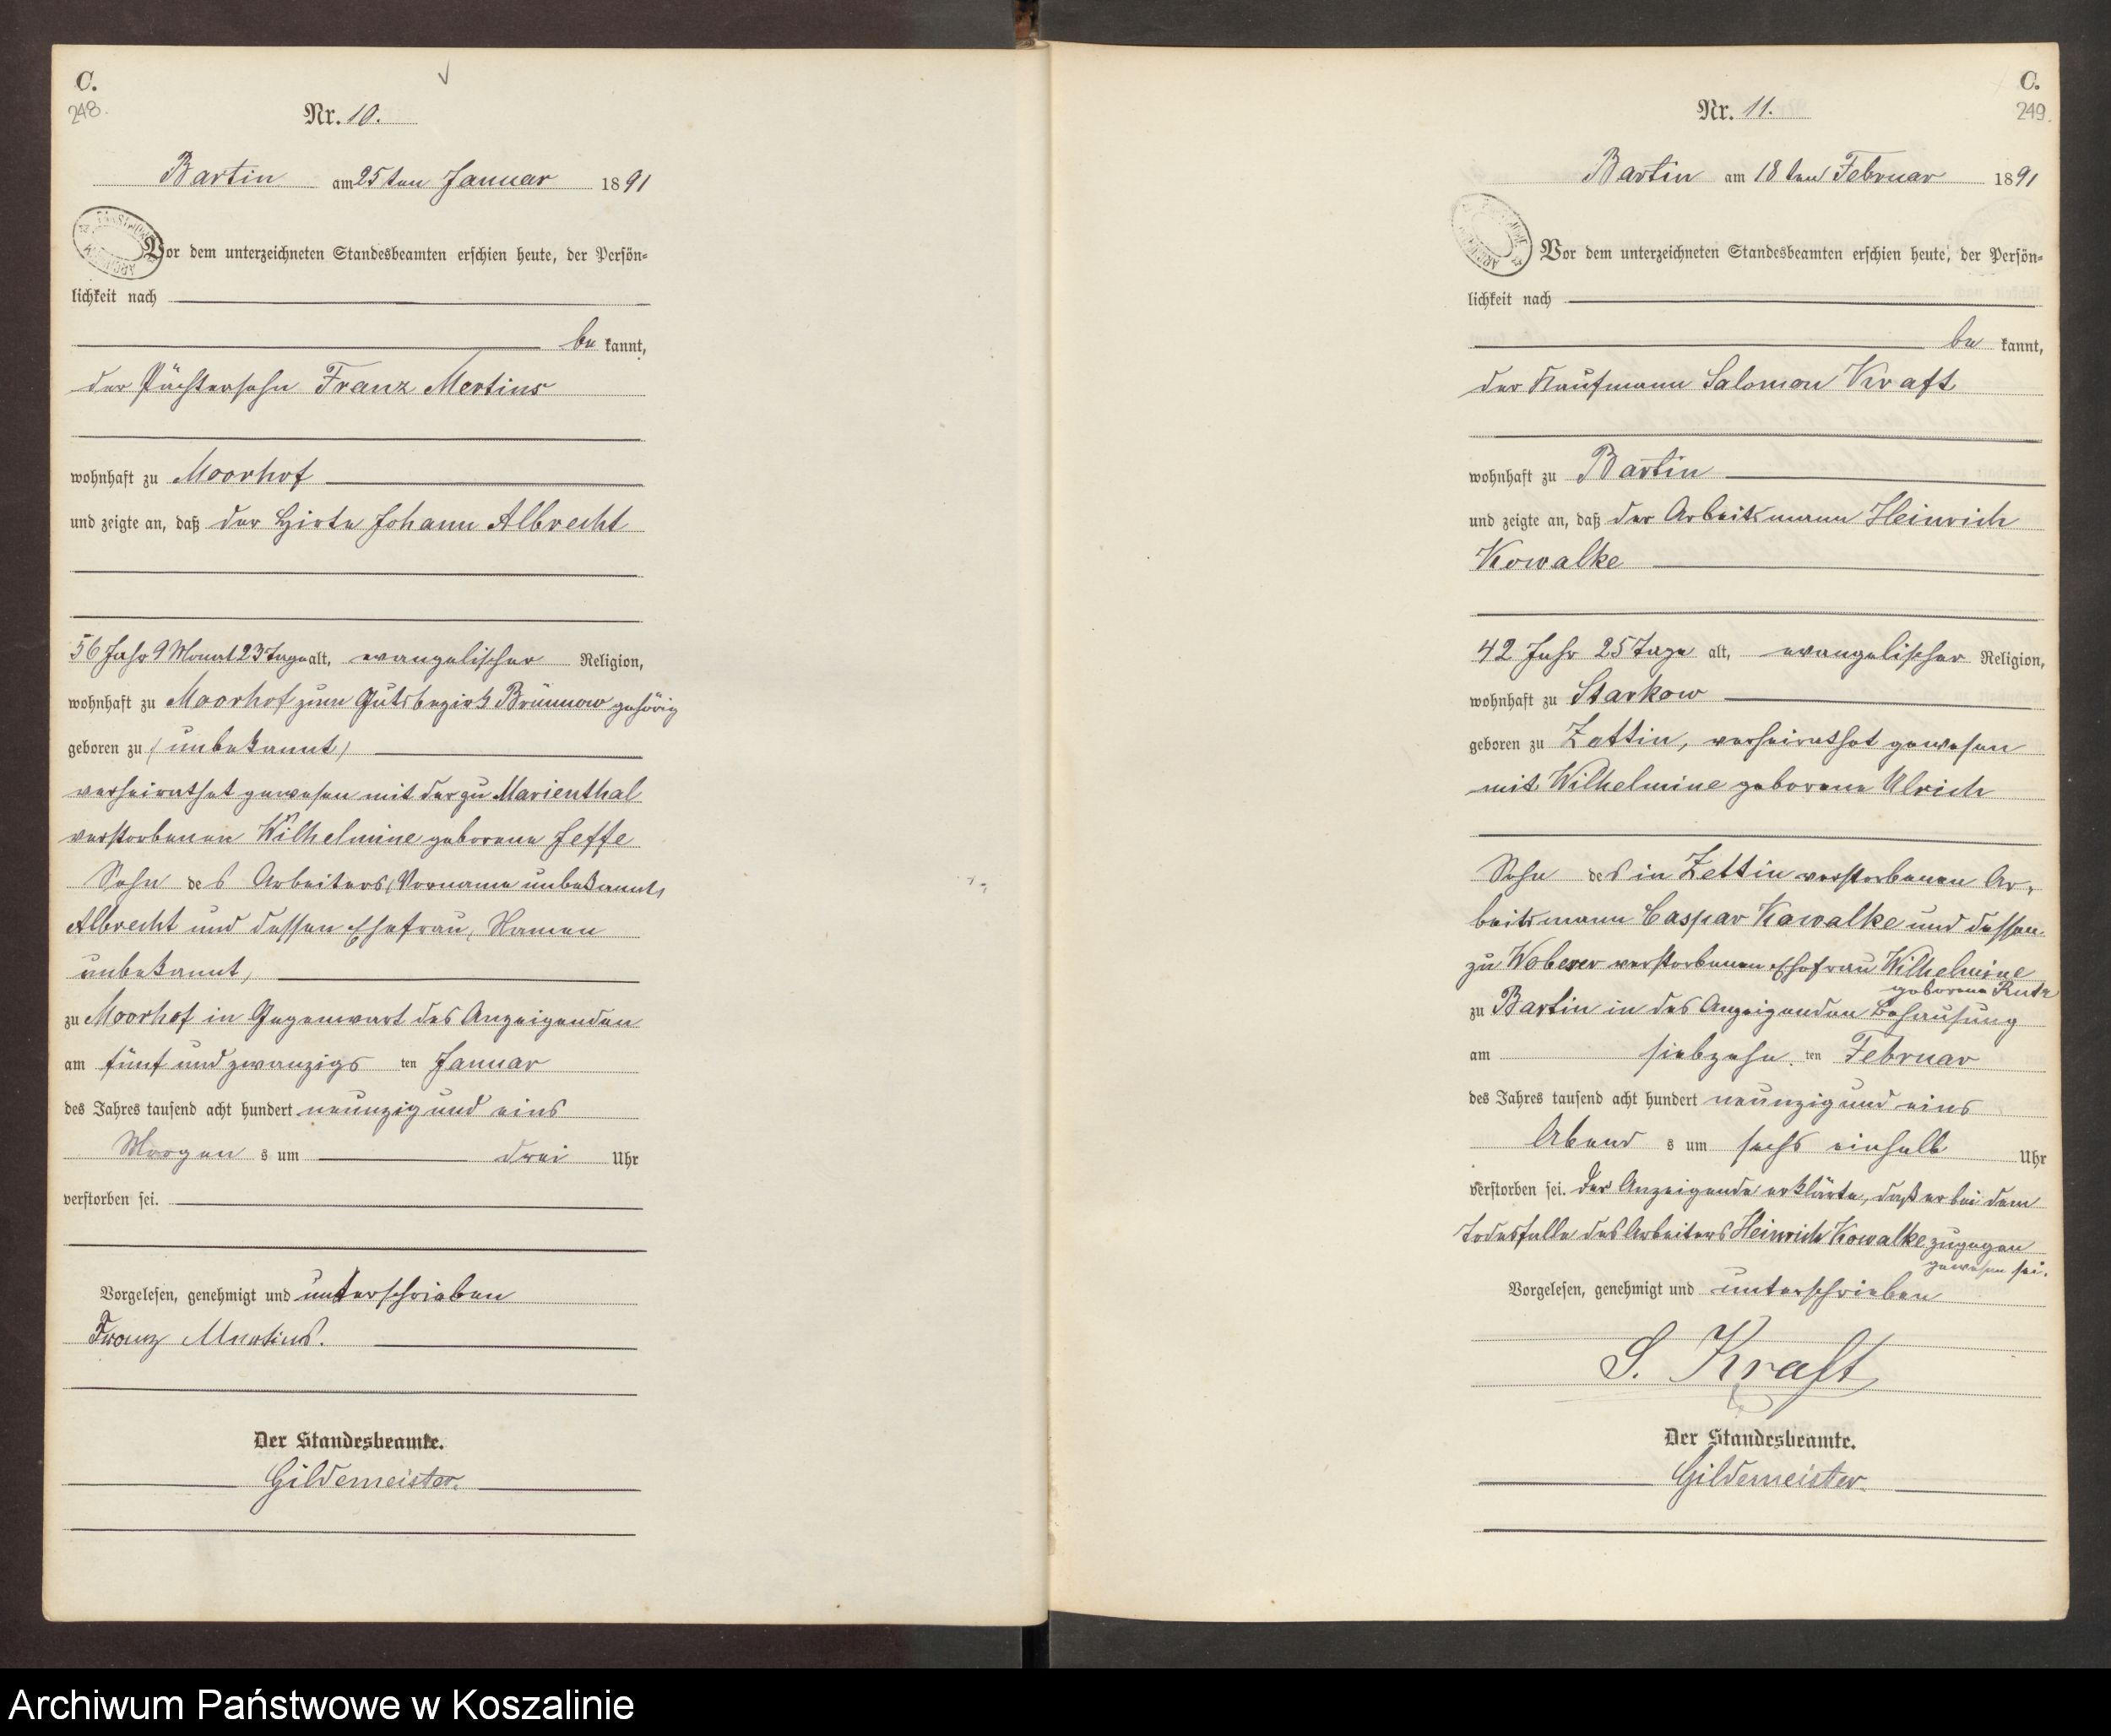 C.
248.
Nr. 10.
Bartin am 25ten Januar 1891
Vor dem unterzeichneten Standesbeamten erschien heute, der Persön-
lichkeit nach
be kannt,
der Pächtersohn Franz Mertins
wohnhaft zu Moorhof
und zeigte an, daß der Hirte Johann Albrecht
56 Jahr 9 Monat 23 Tage alt, evangelischer Religion,
wohnhaft zu Moorhof zum Gutsbezirk Brünnow gehörig
geboren zu (unbekannt)
verheirathet gewesen mit der zu Marienthal
verstorbenen Wilhelmine geborene Jeffe
Sohn des Arbeiters, (Vorname unbekannt,
Albrecht und dessen Ehefrau, Namen
unbekannt,
zu Moorhof in Gegenwart des Anzeigenden
am fünf und zwanzigs ten Januar
des Jahres tausend acht hundert neunzig und eins
Morgen s um drei Uhr
verstorben sei.
Vorgelesen, genehmigt und unterschrieben
Franz Mertins.
Der Standesbeamte.
Gildemeister.
C.
249.
Nr. 11.
Bartin am 18ten Februar 1891
Vor dem unterzeichneten Standesbeamten erschien heute, der Persön-
lichkeit nach
be kannt,
der Kaufmann Salomon Kraft
wohnhaft zu Bartin
und zeigte an, daß der Arbeitsmann Heinrich
Kowalke
42 Jahr 25 Tage alt, evangelischer Religion,
wohnhaft zu Starkow
geboren zu Zettin, verheirathet gewesen
mit Wilhelmine geborene Ulrich
Sohn des in Zettin verstorbenen Ar-
beitsmann Caspar Kowalke und dessen
zu Woberer verstorbenen Ehefrau Wilhelmine
geborene Rutz
zu Bartin in des Anzeigenden Behausung
am siebzehn ten Februar
des Jahres tausend acht hundert neunzig und eins
Abend s um sechs einhalb Uhr
verstorben sei. Der Anzeigende erklärte, daß er bei dem
Todesfalle des Arbeiters Heinrich Kowalke zugegen
gewesen sei.
Vorgelesen, genehmigt und unterschrieben
S. Kraft
Der Standesbeamte.
Gildemeister.
Archiwum Państwowe w Koszalinie